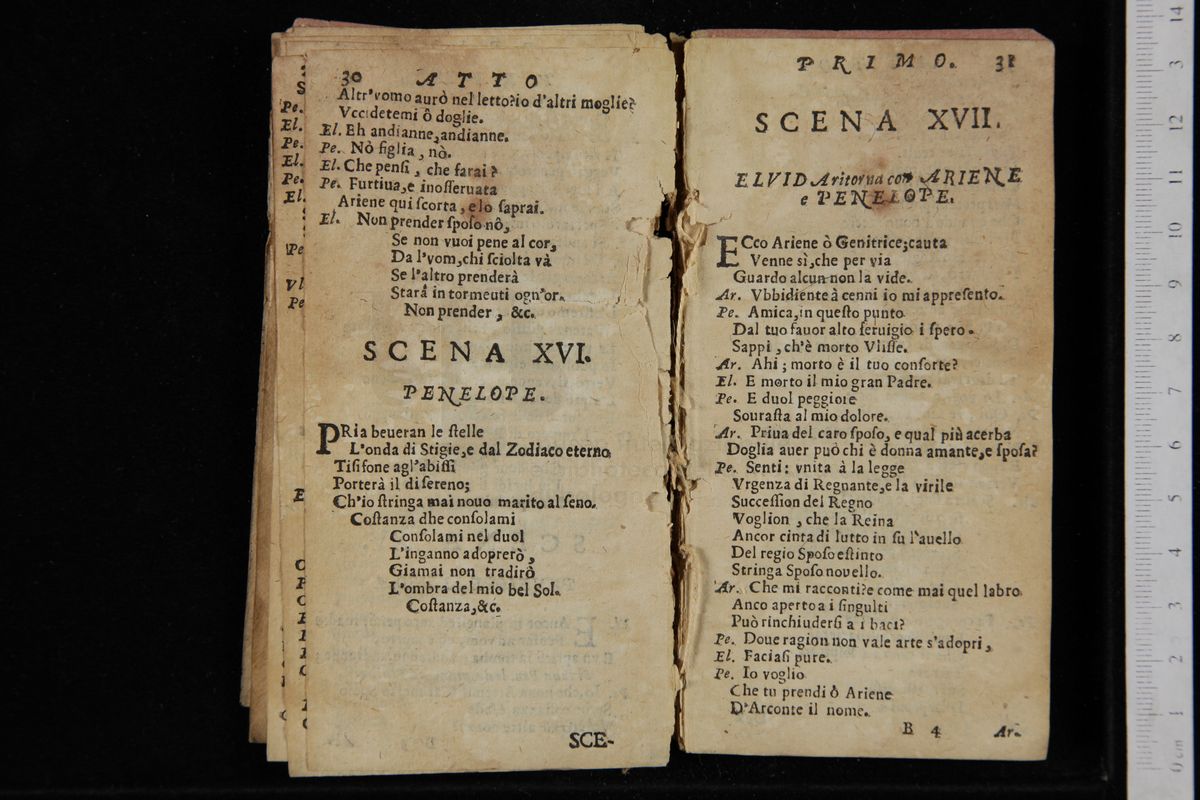 30 ATTO
Altr'vomo aurò nel letto?io d'altri moglie?
Vccidetemi ô doglie.
El. Eh andianne,andianne.
Pe. Nò figlia, nò.
El. Che penſi, che farai?
Pe. Furtiua,e inoſſeruata
Ariene qui ſcorta, e lo ſaprai.
El. Non prender ſpoſo nô,
Se non vuoi pene al cor,
Da l'vom,chi ſciolta và
Se l'altro prenderà
Starà in tormeuti ogn'or.
Non prender, &c.
SCENA XVI.
PENELOPE.
PRia beueran le ſtelle
L'onda di Stigie,e dal Zodiaco eterno
Tiſifone agl'abiſſi
Porterà il di ſereno;
Ch'io ſtringa mai nouo marito al ſeno.
Coſtanza dhe conſolami
Conſolami nel duol
L'inganno adoprerò,
Giamai non tradirò
L'ombra del mio bel Sol.
Coſtanza,&c.
SCE-
Pe.
El.
Pe.
El.
Pe.
El.
Pe
Vl
Pe
PRIMO. 31
SCENA XVII.
ELVIDA ritorna con ARIENE
e PENELOPE.
ECco Ariene ò Genitrice;cauta
Venne sì,che per via
Guardo alcun non la vide.
Ar. Vbbidiente à cenni io mi appreſento.
Pe. Amica,in queſto punto
Dal tuo fauor alto ſeruigio i ſpero.
Sappi, ch'è morto Vliſſe.
Ar. Ahi; morto è il tuo conſorte?
El. E morto il mio gran Padre.
Pe. E duol peggiore
Souraſta al mio dolore.
Ar. Priua del caro ſpoſo, e qual più acerba
Doglia auer può chi è donna amante,e ſpoſa?
Pe. Senti: vnita à la legge
Vrgenza di Regnante,e la virile
Succeſſion del Regno
Voglion, che la Reina
Ancor cinta di lutto in ſu l'auello
Del regio Spoſo eſtinto
Stringa Spoſo nouello.
Ar. Che mi racconti?e come mai quel labro
Anco aperto a i ſingulti
Può rinchiuderſi a i baci?
Pe. Doue ragion non vale arte s'adopri,
El. Faciaſi pure.
Pe. Io voglio
Che tu prendi ô Ariene
D'Arconte il nome.
B 4 Ar.